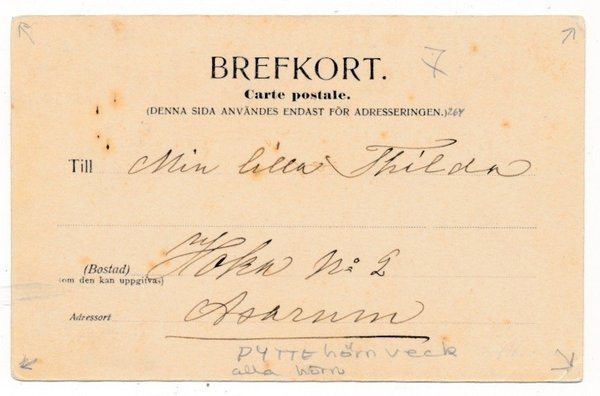 7
BREFKORT.
Carte postale.
(DENNA SIDA ANVÄNDES ENDAST FÖR ADRESSERINGEN.) 264
Till Min lilla Thilda
(Bostad) Hoka No 2
(om den kan uppgifvas)
Adressort Asarum
PYTTEhörnveck
alla hörn